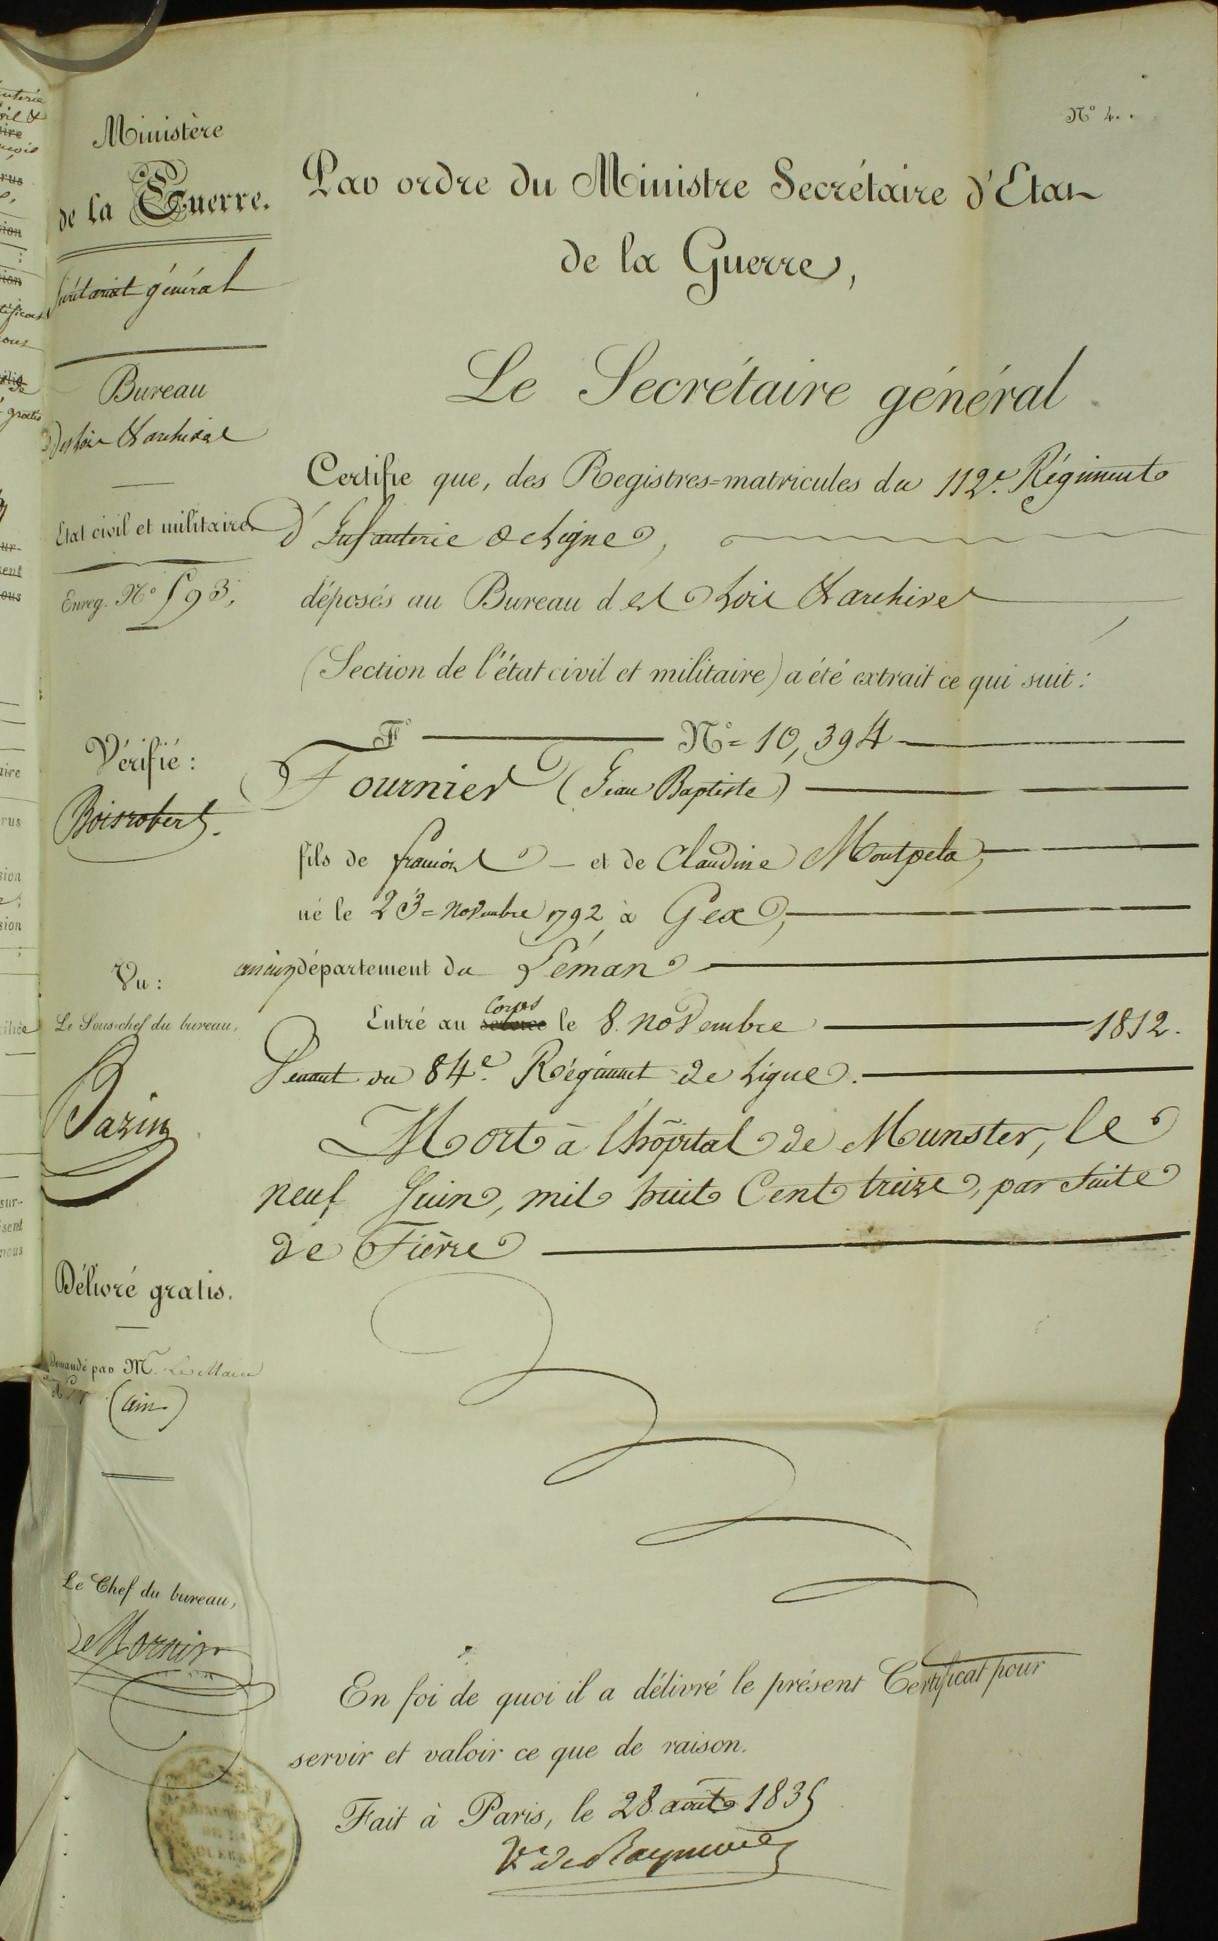 N° 4.
Ministère
de la Guerre.
Secrétariat général
Bureau
des Lois & archives
Etat civil et militaire.
Enreg. N° 593.
Vérifié :
Boisrobert.
Vu :
Le Sous-chef du bureau,
Bazin
Délivré gratis.
Demandé par Mr. Le Maire
(ain)
Le Chef du bureau,
Par ordre du Ministre Secrétaire d'Etat
de la Guerre,
Le Secrétaire général
Certifie que, des Registres-matricules du 112e. Régiment
d'Infanterie de Ligne,
déposés au Bureau des Lois & archives
(Section de l'état civil et militaire) a été extrait ce qui suit :
F° N° 10,394
Fournier (Jean Baptiste)
fils de françois et de Claudine Montpela,
né le 23 = novembre 1792, à Gex,
ancien département du Léman
Entré au service Corps le 8. novembre 1812.
Venant du 84e. Régiment de Ligne.
Mort à l'hôpital de Munster, le
neuf Juin, mil huit Cent treize, par Suite
de Fièvre
En foi de quoi il a délivré le présent Certificat pour
servir et valoir ce que de raison.
Fait à Paris, le 28 août 1835
DE LA
GUERRE